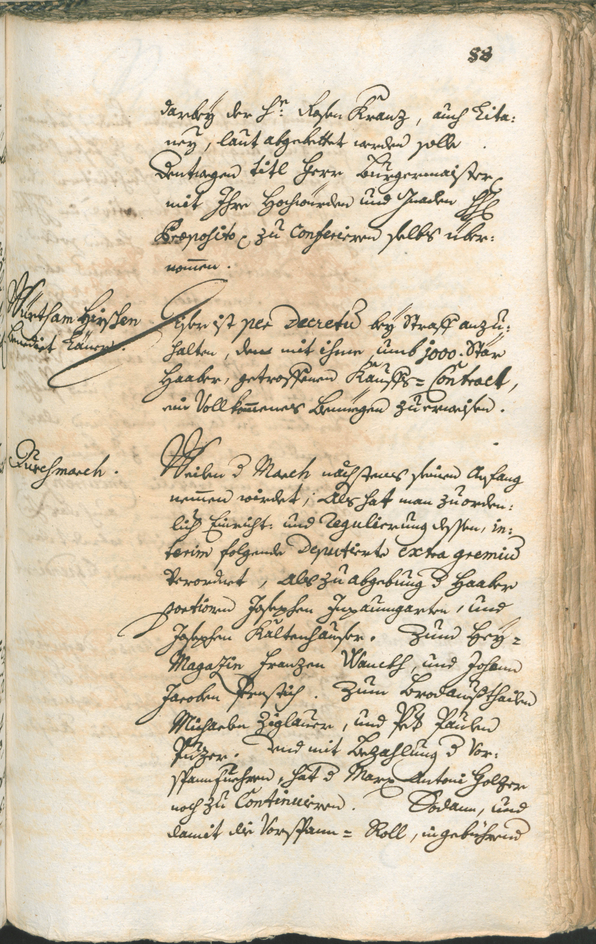 58
darbey der H: Rosen Kranz, auch Lita:
ney, laut abgebettet werden solle.
Dentwegen titl Herr Burgermaister
mit Ihro Hochwürden und Gnaden
Praeposito, zu Conferieren selbs über:
nommen.
Würth am Hirschen
Benedict
Hier ist per Decretu bey Straff anzu:
halten, dem mit ihme, umb 1000. Stär
Haaber, getroffenen Kauffs= Contract,
ein Vollkommenes Benüegen zuerweisen.
Durchmarch.
Weilen d March nächstens seinen Anfang
nemmen wirdet; Als hat man zu orden:
lich Einricht: und Regulierung dessen, in:
terim folgende Deputierte extra gremiu
Verordnet, als zu abgebung d Haaber
portionen Josephen Inpaumgarten, und
Josephen Kaltenhauser. Zum Hey=
Magazin Franzen und Johann
Jacoben. Zum Brodaußthailen
Michaeln Ziglauer, und Pet: Paulen
Und mit Bezahlung d Vor:
spannfuehren, hat d Marx Antoni Golser
noch zu Continuieren. Sodann, und
damit die Vorspann= Roll, in gebührend